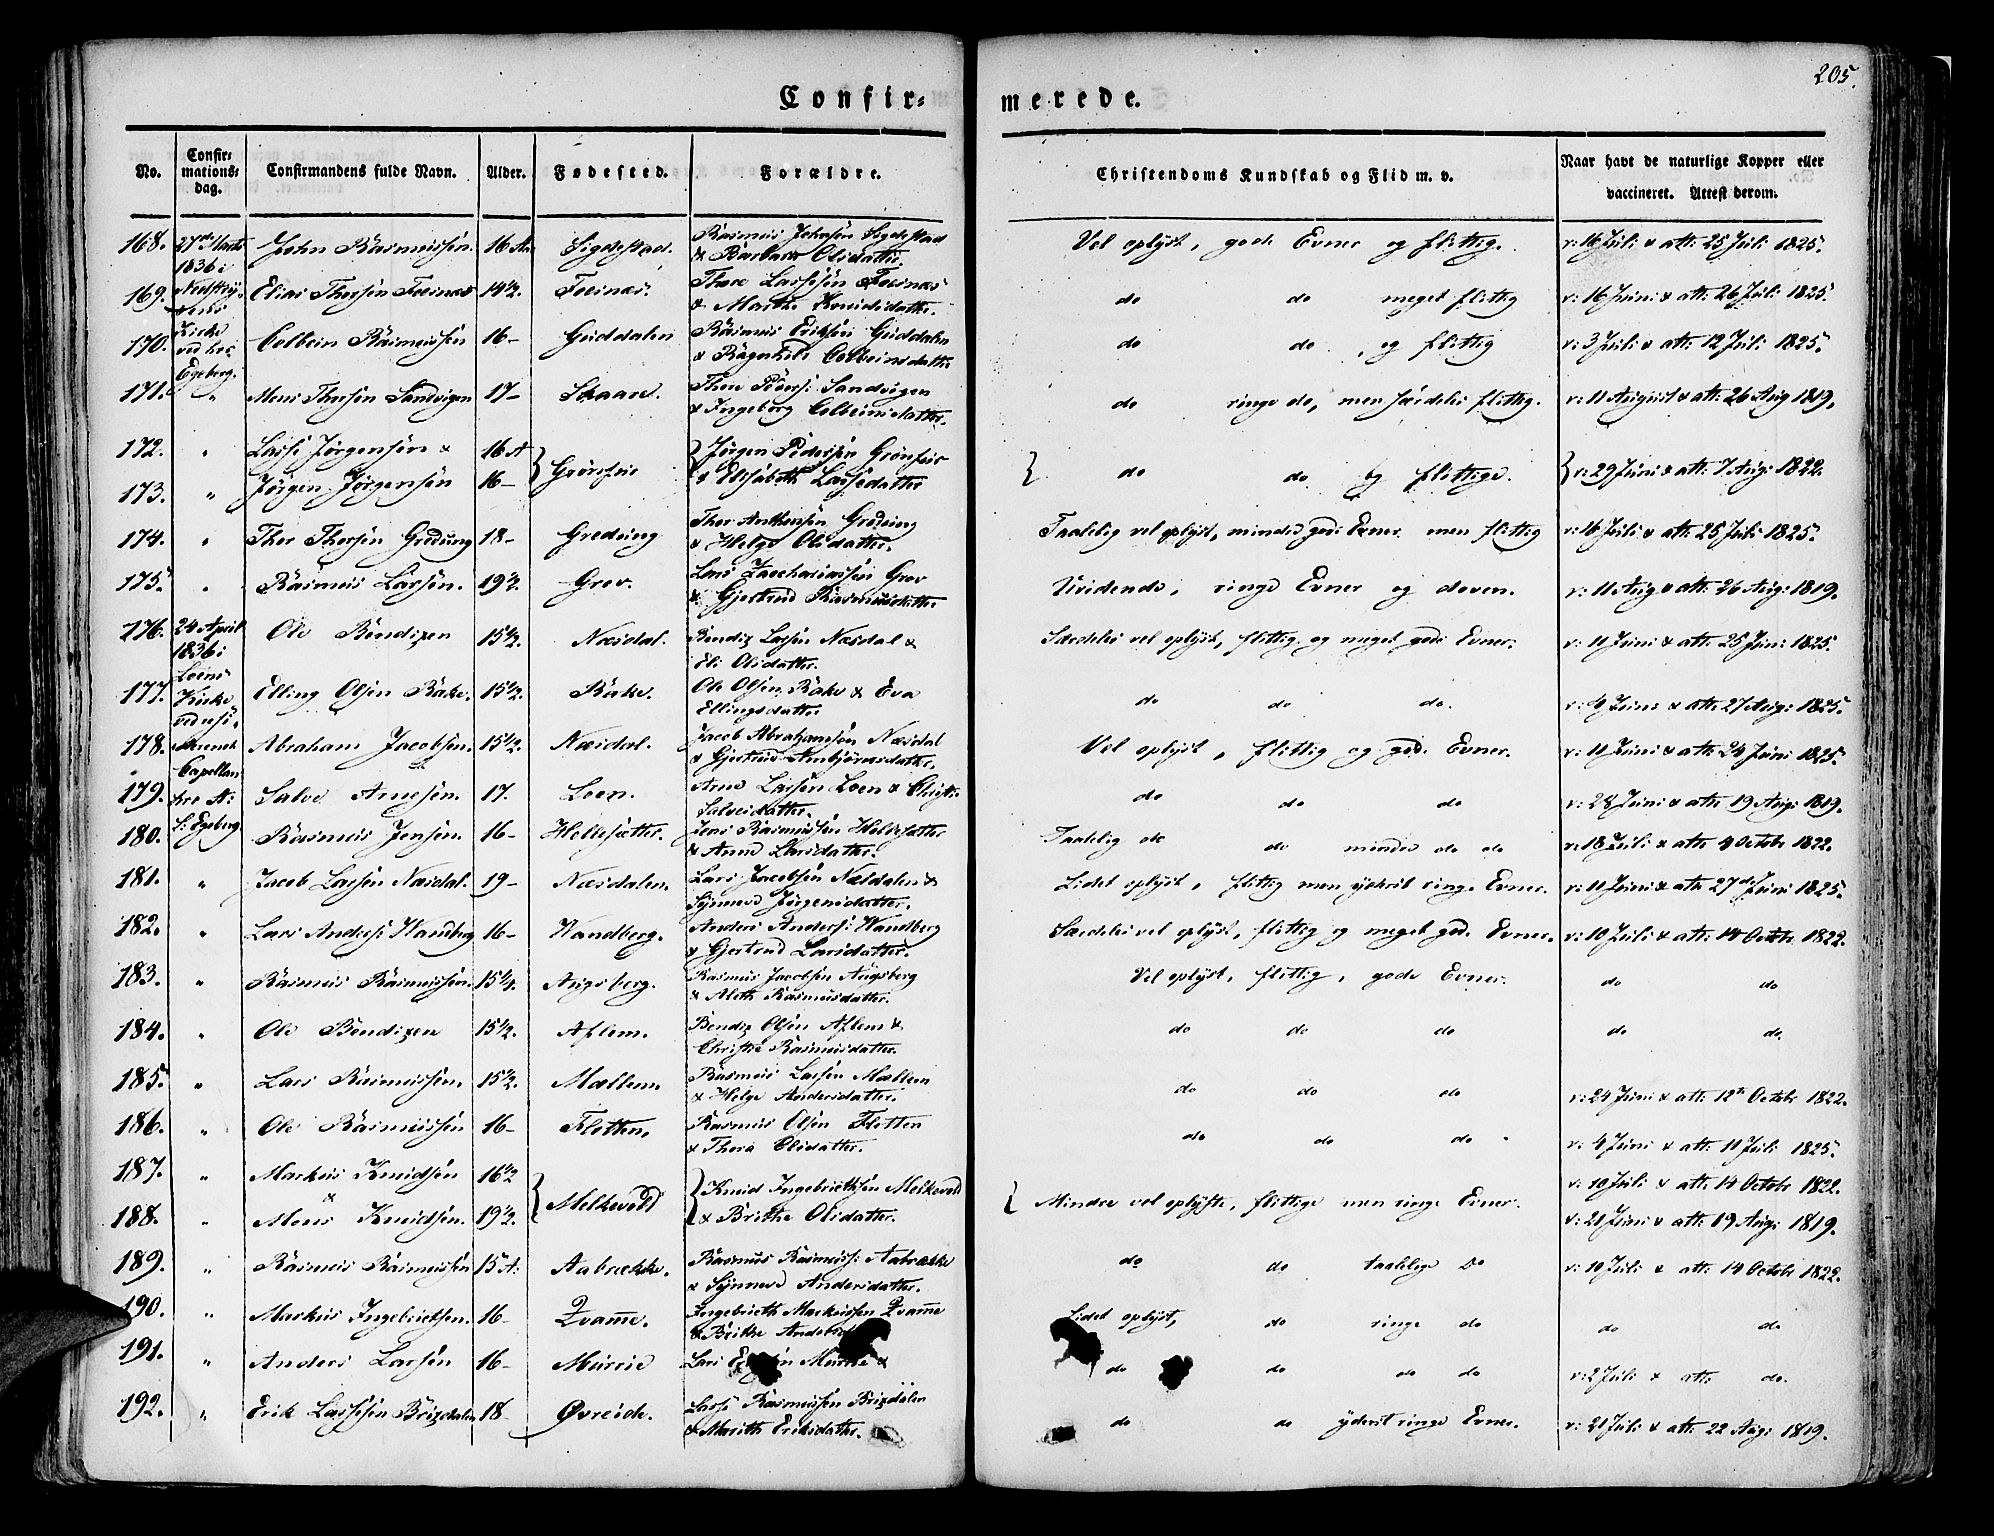 205.
Confir=
merede.
No. Confir=mations=dag. Confirmandens fulde Navn. Alder. Fødested. Forældre. Christendoms Kundskab og Flid m. v. Naar havt de naturlige Kopper eller vaccineret. Attest derom.
168. 27de Marts John Rasmussen. 16 Aar Sigdestad. Rasmus Johnsen Sigdestad Vel oplyst, gode Evner og flittig. v: 16 Juli & att: 25 Juli 1825.
1836 i & Barbara Olsdatter.
169. Elias Thorsen Foesnæs 14½. Foesnæs. Thore Lassesen Foesnæs do do meget flittig v: 16 Juni & att: 26 Juli 1825.
& Marthe Knudsdatter.
170. Kirke Colbein Rasmussen 16- Guddalen Rasmus Eriksen Guddaln do do, og flittig v: 3 Juli & att: 12 Juli 1825.
ved hrr & Ragnhild Colbeinsdatter
Egeberg.
171. " Mons Thorsen Sandvigen 17- Skaare. Thore Peders: Sandvigen do ringe do, men særdeles flittig. v: 11 August & att: 26 Aug 1819.
& Ingeborg Colbeinsdatter.
172. " Lasse Jørgensen & 16 A Grønfur Jørgen Pedersen Grønfur do do og flittige. v: 29 Juni & att: 7 Aug: 1822.
173. " Jørgen Jørgensen 16- & Elisabeth Lassedatter
174. " Thor Thorsen Gredung 18- Gredung Thor Anthonsen Gredung Taalelig vel oplyst, mindre gode Evner men flittig v: 16 Juli & att: 25 Juli 1825.
& Helge Olsdatter.
175. " Rasmus Larsen. 19½. Grov. Lars Zacchariassen Grov Uvidende, ringe Evner og doven. v: 11 Aug & att: 26 Aug: 1819.
& Gjertrud Rasmusdatter
176. 24 April Ole Bendixen 15½. Næsdal. Bendix Larsen Næsdal & Særdeles vel oplyst, flittig og meget gode Evner. v: 11 Juni & att: 25 Juni 1825.
1836 i Eli Olsdatter.
Loens
177. Kirke Elling Olsen Rake. 15½. Rake. Ole Olsen Rake & Eva do do do. v: 4 Juni & att: 27 Aug: 1825.
Ellingsdatter
178. Abraham Jacobsen. 15½. Næsdal. Jacob Abrahamsen Næsdal Vel oplyst, flittig og gode Evner. v: 11 Juni & att: 24 Juni 1825.
& Gjertrud Ambjørnsdatter.
Capellan
179. Salve Arnesen. 17. Loen. Arne Larsen Loen & do do do v: 28 Juni & att: 19 Aug: 1819.
Salvesdatter.
180. S: Egeberg Rasmus Jensen. 16- Hellesætter. Jens Rasmussen Hellesætter Taalelig do do mindre do do v: 18 Juli & att: 4 Octobr 1822.
& Anne Larsdatter.
181. " Jacob Larsen Næsdal. 19- Næsdalen. Lars Jacobsen Næsdalen & Lidet oplyst, flittig men yderst ringe Evner. v: 11 Juni & att: 27de Juni 1825.
Synneve Jørgensdatter.
182. " Lars Anders: Wandberg 16- Wandberg. Anders Anders: Wandberg Særdeles vel oplyst, flittig og meget gode Evner. v: 10 Juli & att: 14 Octbr 1822.
& Gjertrud Larsdatter.
183. " Rasmus Rasmussen. 15¼. Augsberg. Rasmus Jacobsen Augsberg Vel oplyst, flittig, gode Evner. do do
& Aleth Rasmusdatter.
184. " Ole Bendixen 15½. Aflem. Bendix Olsen Aflem & do do do do do.
Christie Rasmusdatter.
185. " Lars Rasmussen. 15½. Mællem. Rasmus Larsen Mællem do do do v: 24 Juni & att: 12te Octobr 1822.
& Helge Andersdatter.
186. " Ole Rasmussen 16- Flotten. Rasmus Olsen Flotten do do do v: 4 Juni & att: 11 Juli 1825.
& Thora Olsdatter.
187. " Markus Knudsen 16½ Melkevold Knud Ingebrigtsen Melkevold Mindre vel oplyste, flittige men ringe Evner. v: 10 Juli & att: 14 Octobr 1822.
&
188. " Mons Knudsen. 19½. & Brithe Olsdatter. v: 21 Juni & att: 19 Aug: 1819.
189. " Rasmus Rasmussen 15 A: Aabrække. Rasmus Rasmuss: Aabrække do do taalelige do v: 10 Juli & att: 14 Octobr 1822.
& Synneve Andersdatter.
190. " Markus Ingebrigtsen. 16- Qvame. Ingebrigth Markussen Qvame Lidet oplyst, do ringe do do do
& Brithe
191. " Anders Larsen 16- Murrie Lars Murrie & do do do do v: 2 Juli & att: do.
192. " Erik Lassesen Brixdalen 18- Øvreide. Lasse Rasmussen Brixdalen do do yderst ringe Evner. v: 21 Juli & att: 22 Aug: 1819.
& Marith Eriksdatter.